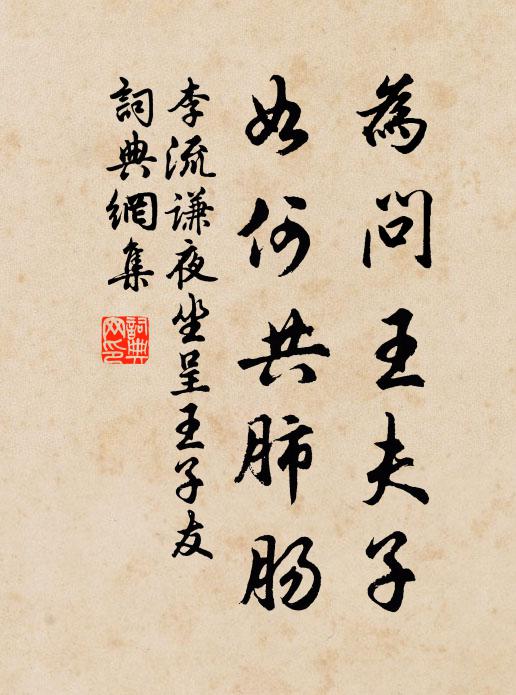 為問王夫子
如何共肺腸
李流谦夜坐呈王子友
詞典網集
詞典网印